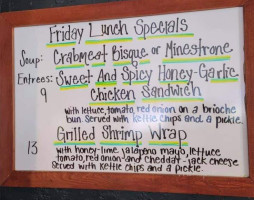 Friday Lunch Specials
Soup: Crabmeat Bisque or Minestrone
Entrees: Sweet And Spicy Honey-Garlic
9 Chicken Sandwich
with lettuce, tomato, red onion on a brioche
bun. Served with kettle chips and a pickle.
Grilled Shrimp Wrap
13 with honey-lime jalapeno mayo, lettuce
tomato, red onion and cheddar-jack cheese
Served with kettle chips and a pickle.